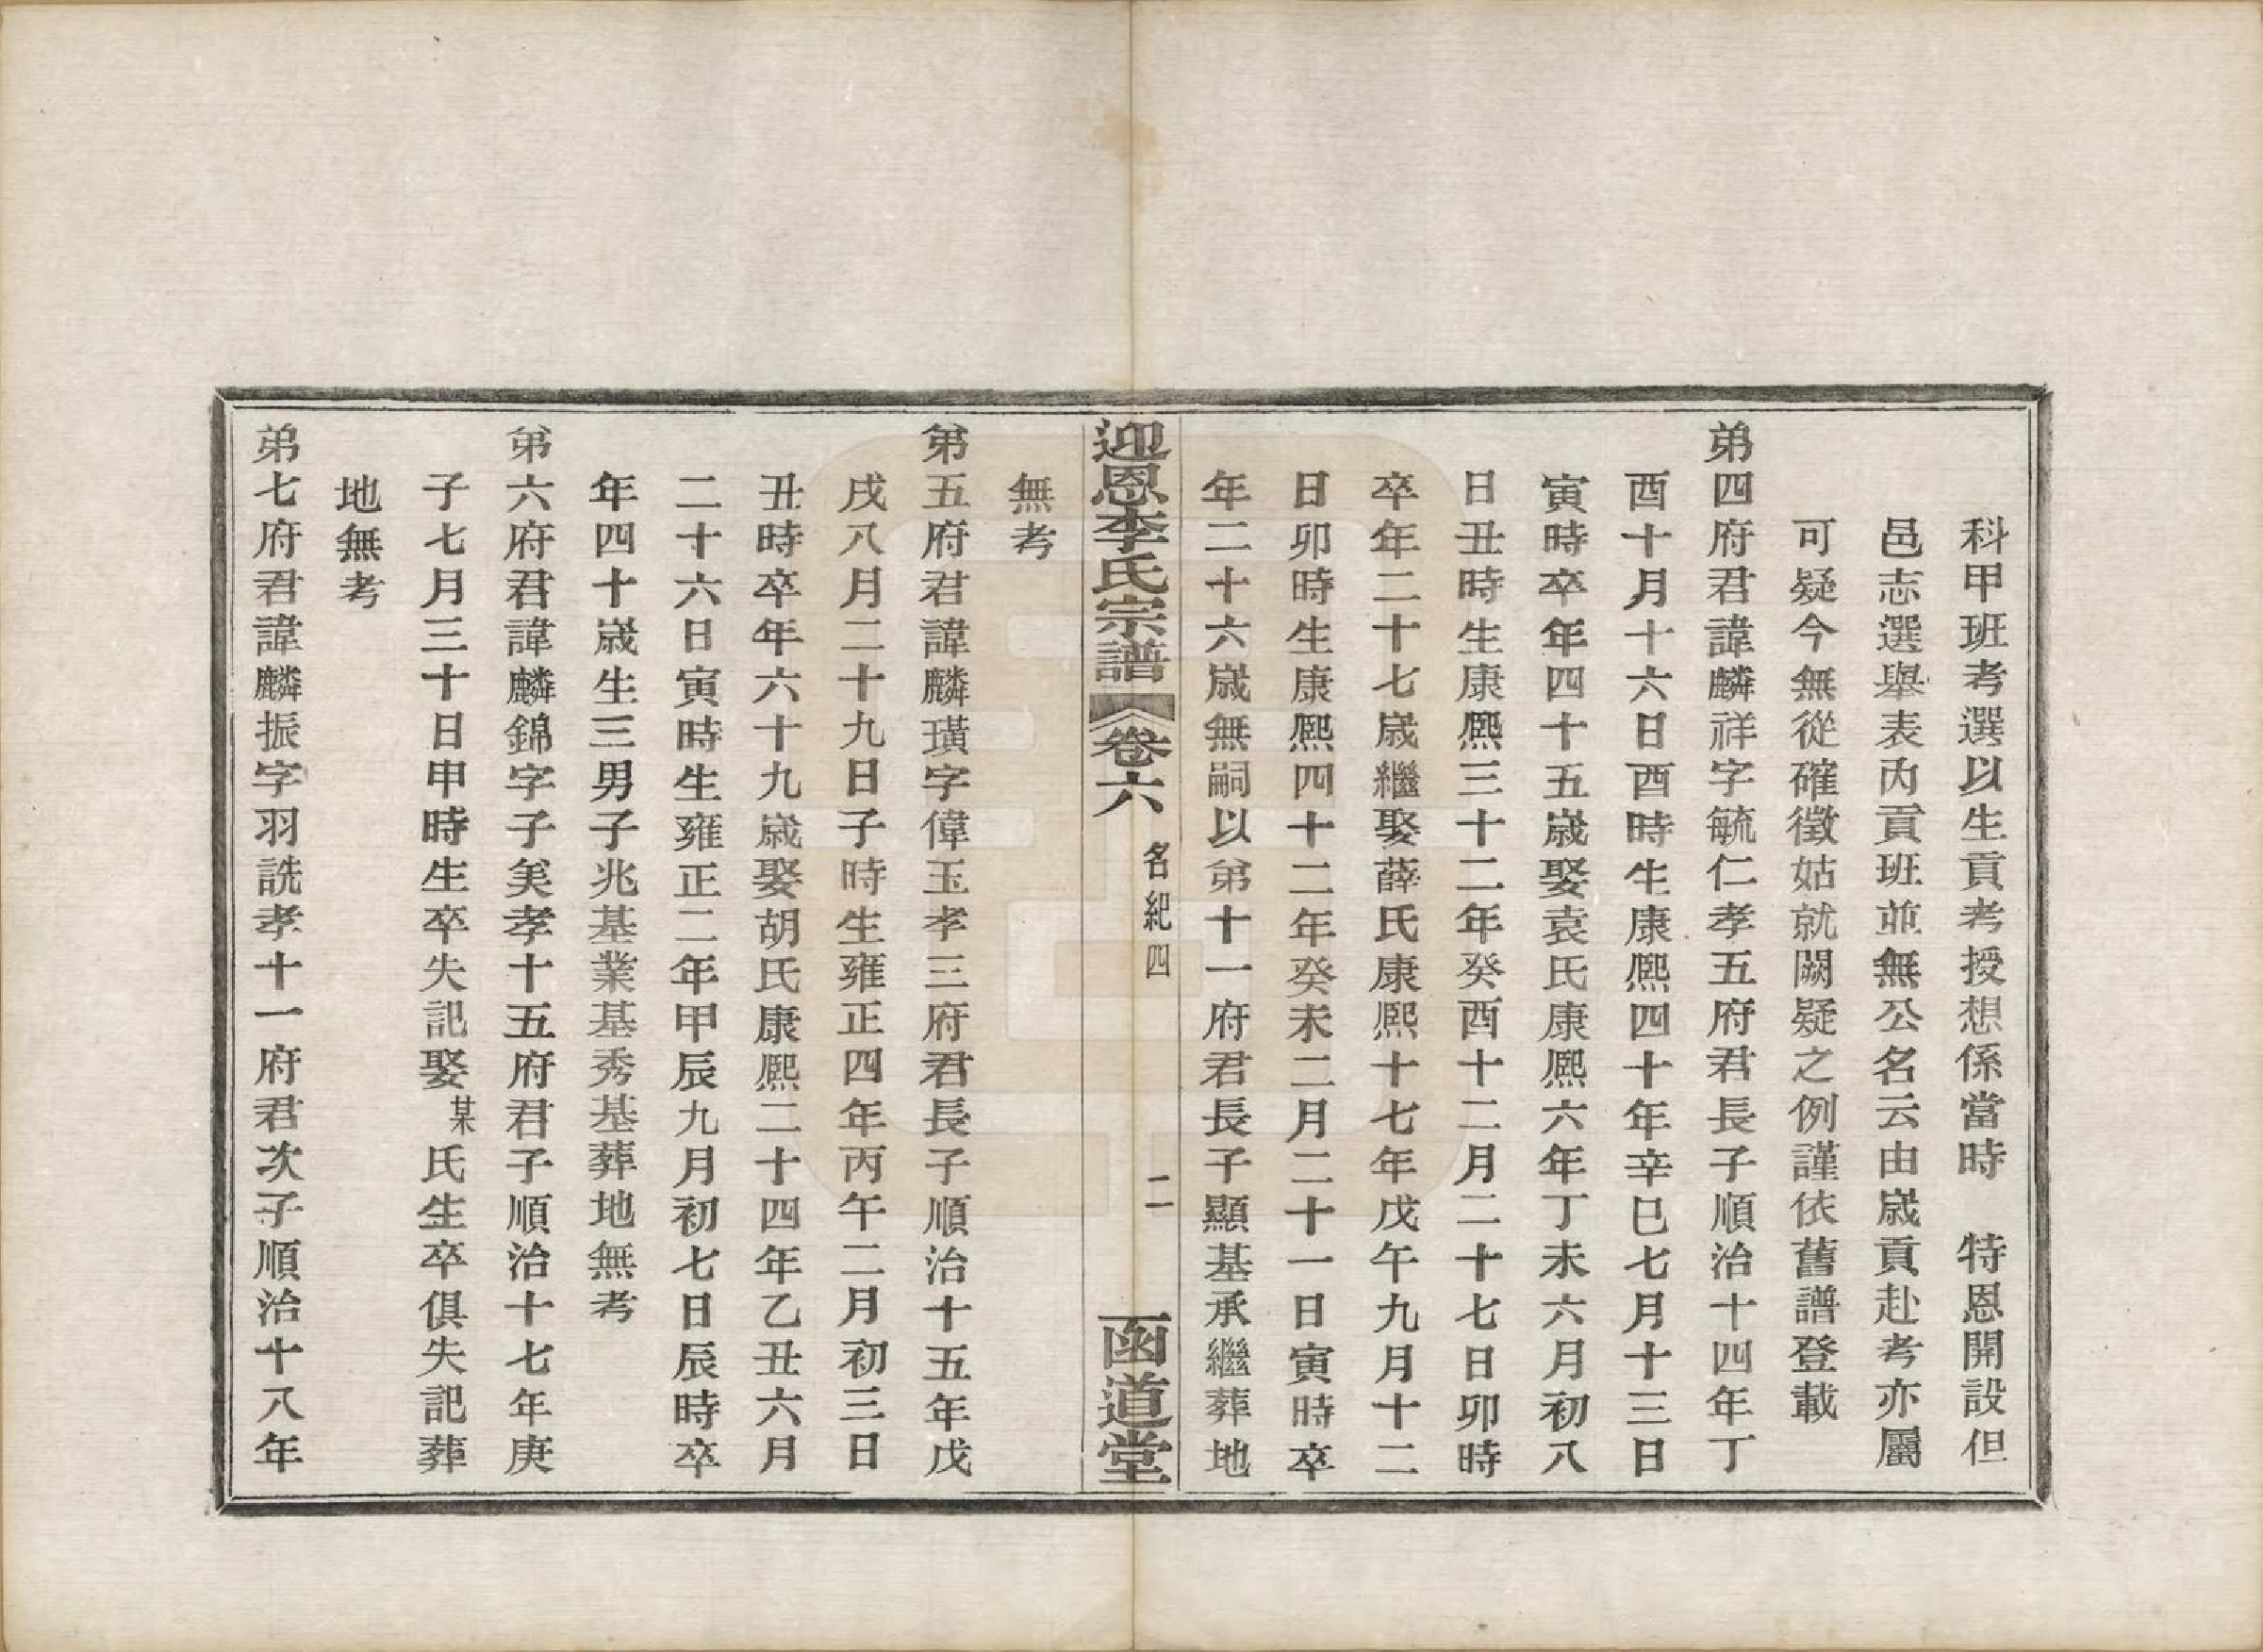 科甲班考選以生貢考授想係當時　特恩開設但
邑志選舉表內貢班並無公名云由歲貢赴考亦屬
可疑今無從確徵姑就闕疑之例謹依舊譜登載
弟四府君諱麟祥字毓仁孝五府君長子順治十四年丁
酉十月十六日酉時生康熙四十年辛巳七月十三日
寅時卒年四十五歲娶袁氏康熙六年丁未六月初八
日丑時生康熙三十二年癸酉十二月二十七日卯時
卒年二十七歲繼娶薛氏康熙十七年戊午九月十二
日卯時生康熙四十二年癸未二月二十一日寅時卒
年二十六歲無嗣以弟十一府君長子顯基承繼葬地
迎恩李氏宗譜　卷六　名紀四　二　函道堂
無考
弟五府君諱麟璜字偉玉孝三府君長子順治十五年戊
戌八月二十九日子時生雍正四年丙午二月初三日
丑時卒年六十九歲娶胡氏康熙二十四年乙丑六月
二十六日寅時生雍正二年甲辰九月初七日辰時卒
年四十歲生三男子兆基業基秀基葬地無考
弟六府君諱麟錦字子美孝十五府君子順治十七年庚
子七月三十日申時生卒失記娶某氏生卒俱失記葬
地無考
弟七府君諱麟振字羽詵孝十一府君次子順治十八年